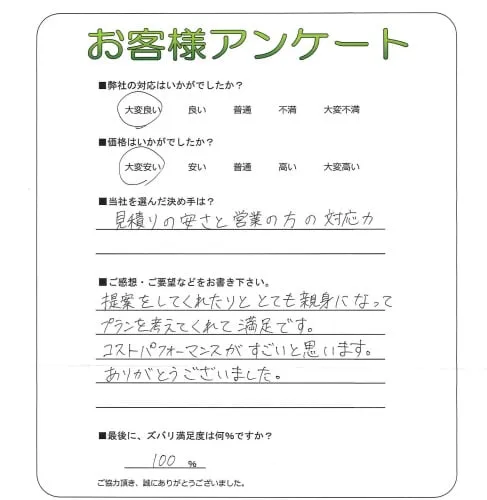 お客様アンケート
■弊社の対応はいかがでしたか？
大変良い 良い 普通 不満 大変不満
■価格はいかがでしたか？
大変安い 安い 普通 高い 大変高い
■当社を選んだ決め手は？
見積りの安さと営業の方の対応力
■ご感想・ご要望などをお書き下さい。
提案をしてくれたりと とても親身になって
プランを考えてくれて満足です。
コストパフォーマンスがすごいと思います。
ありがとうございました。
■最後に、ズバリ満足度は何％ですか？
100 %
ご協力頂き、誠にありがとうございました。